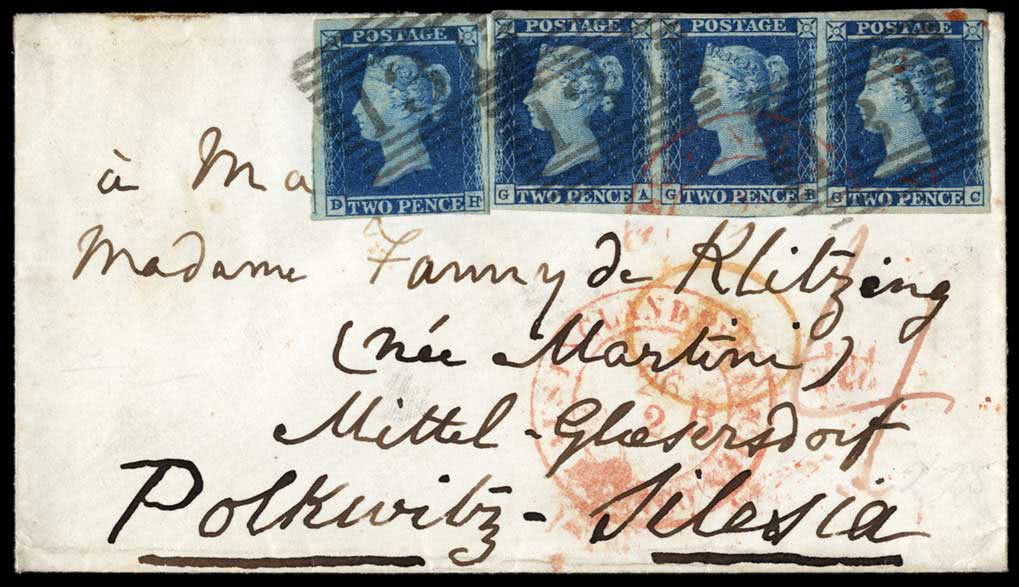 POSTAGE POSTAGE POSTAGE POSTAGE
D H G A G B G C
TWO PENCE TWO PENCE TWO PENCE TWO PENCE
à Ma
Madame Fanny de Klitzing
(née Martini)
Mittel-Glæsersdorf
Polkwitz - Silesia